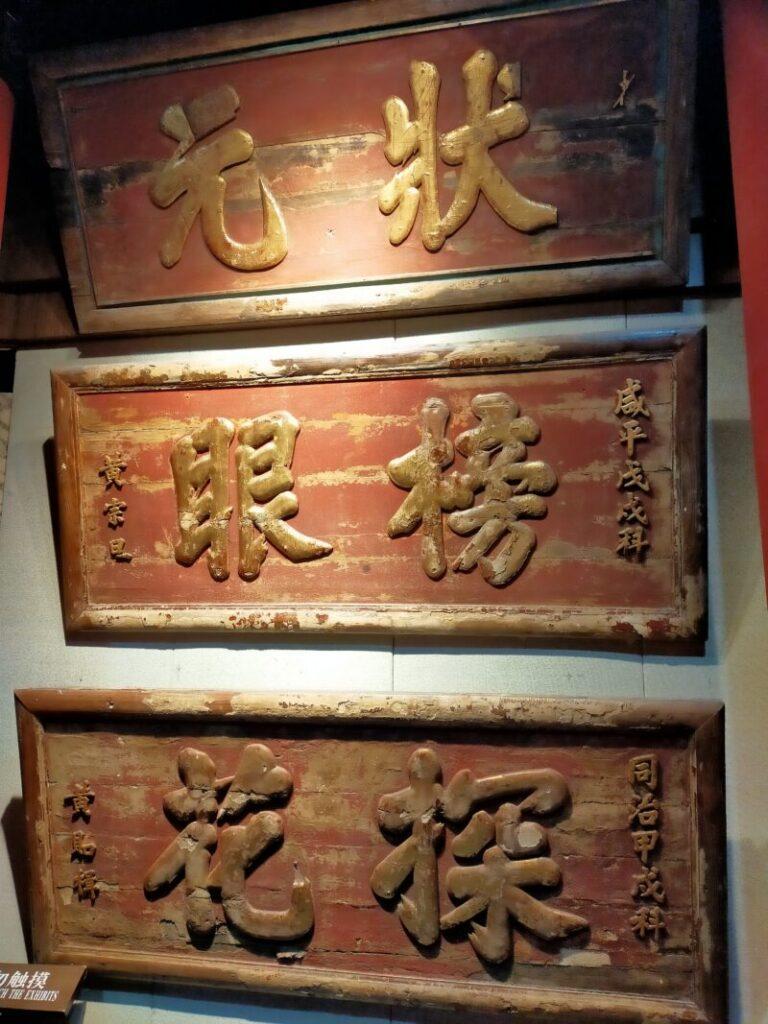 狀元
咸平戊戌科
榜眼
黃宗旦
同治甲戌科
探花
黃貽楫
触摸
THE EXHIBITS